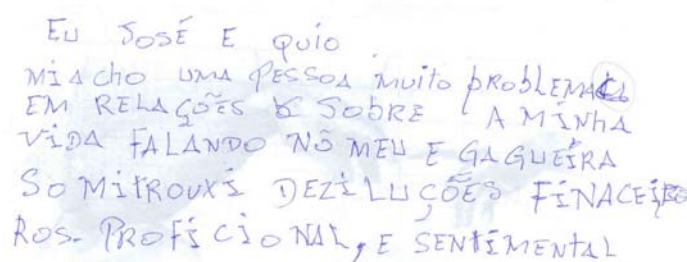 EU JOSÉ E QUIO
MIACHO UMA PESSOA MUITO PROBLEMA
EM RELAÇÕES SOBRE A MINHA
VIDA FALANDO NÕ MEU E GAGUEIRA
SO MITROUXI DEZILUÇÕES FINACEIRO
ROS. PROFICIONAL, E SENTIMENTAL